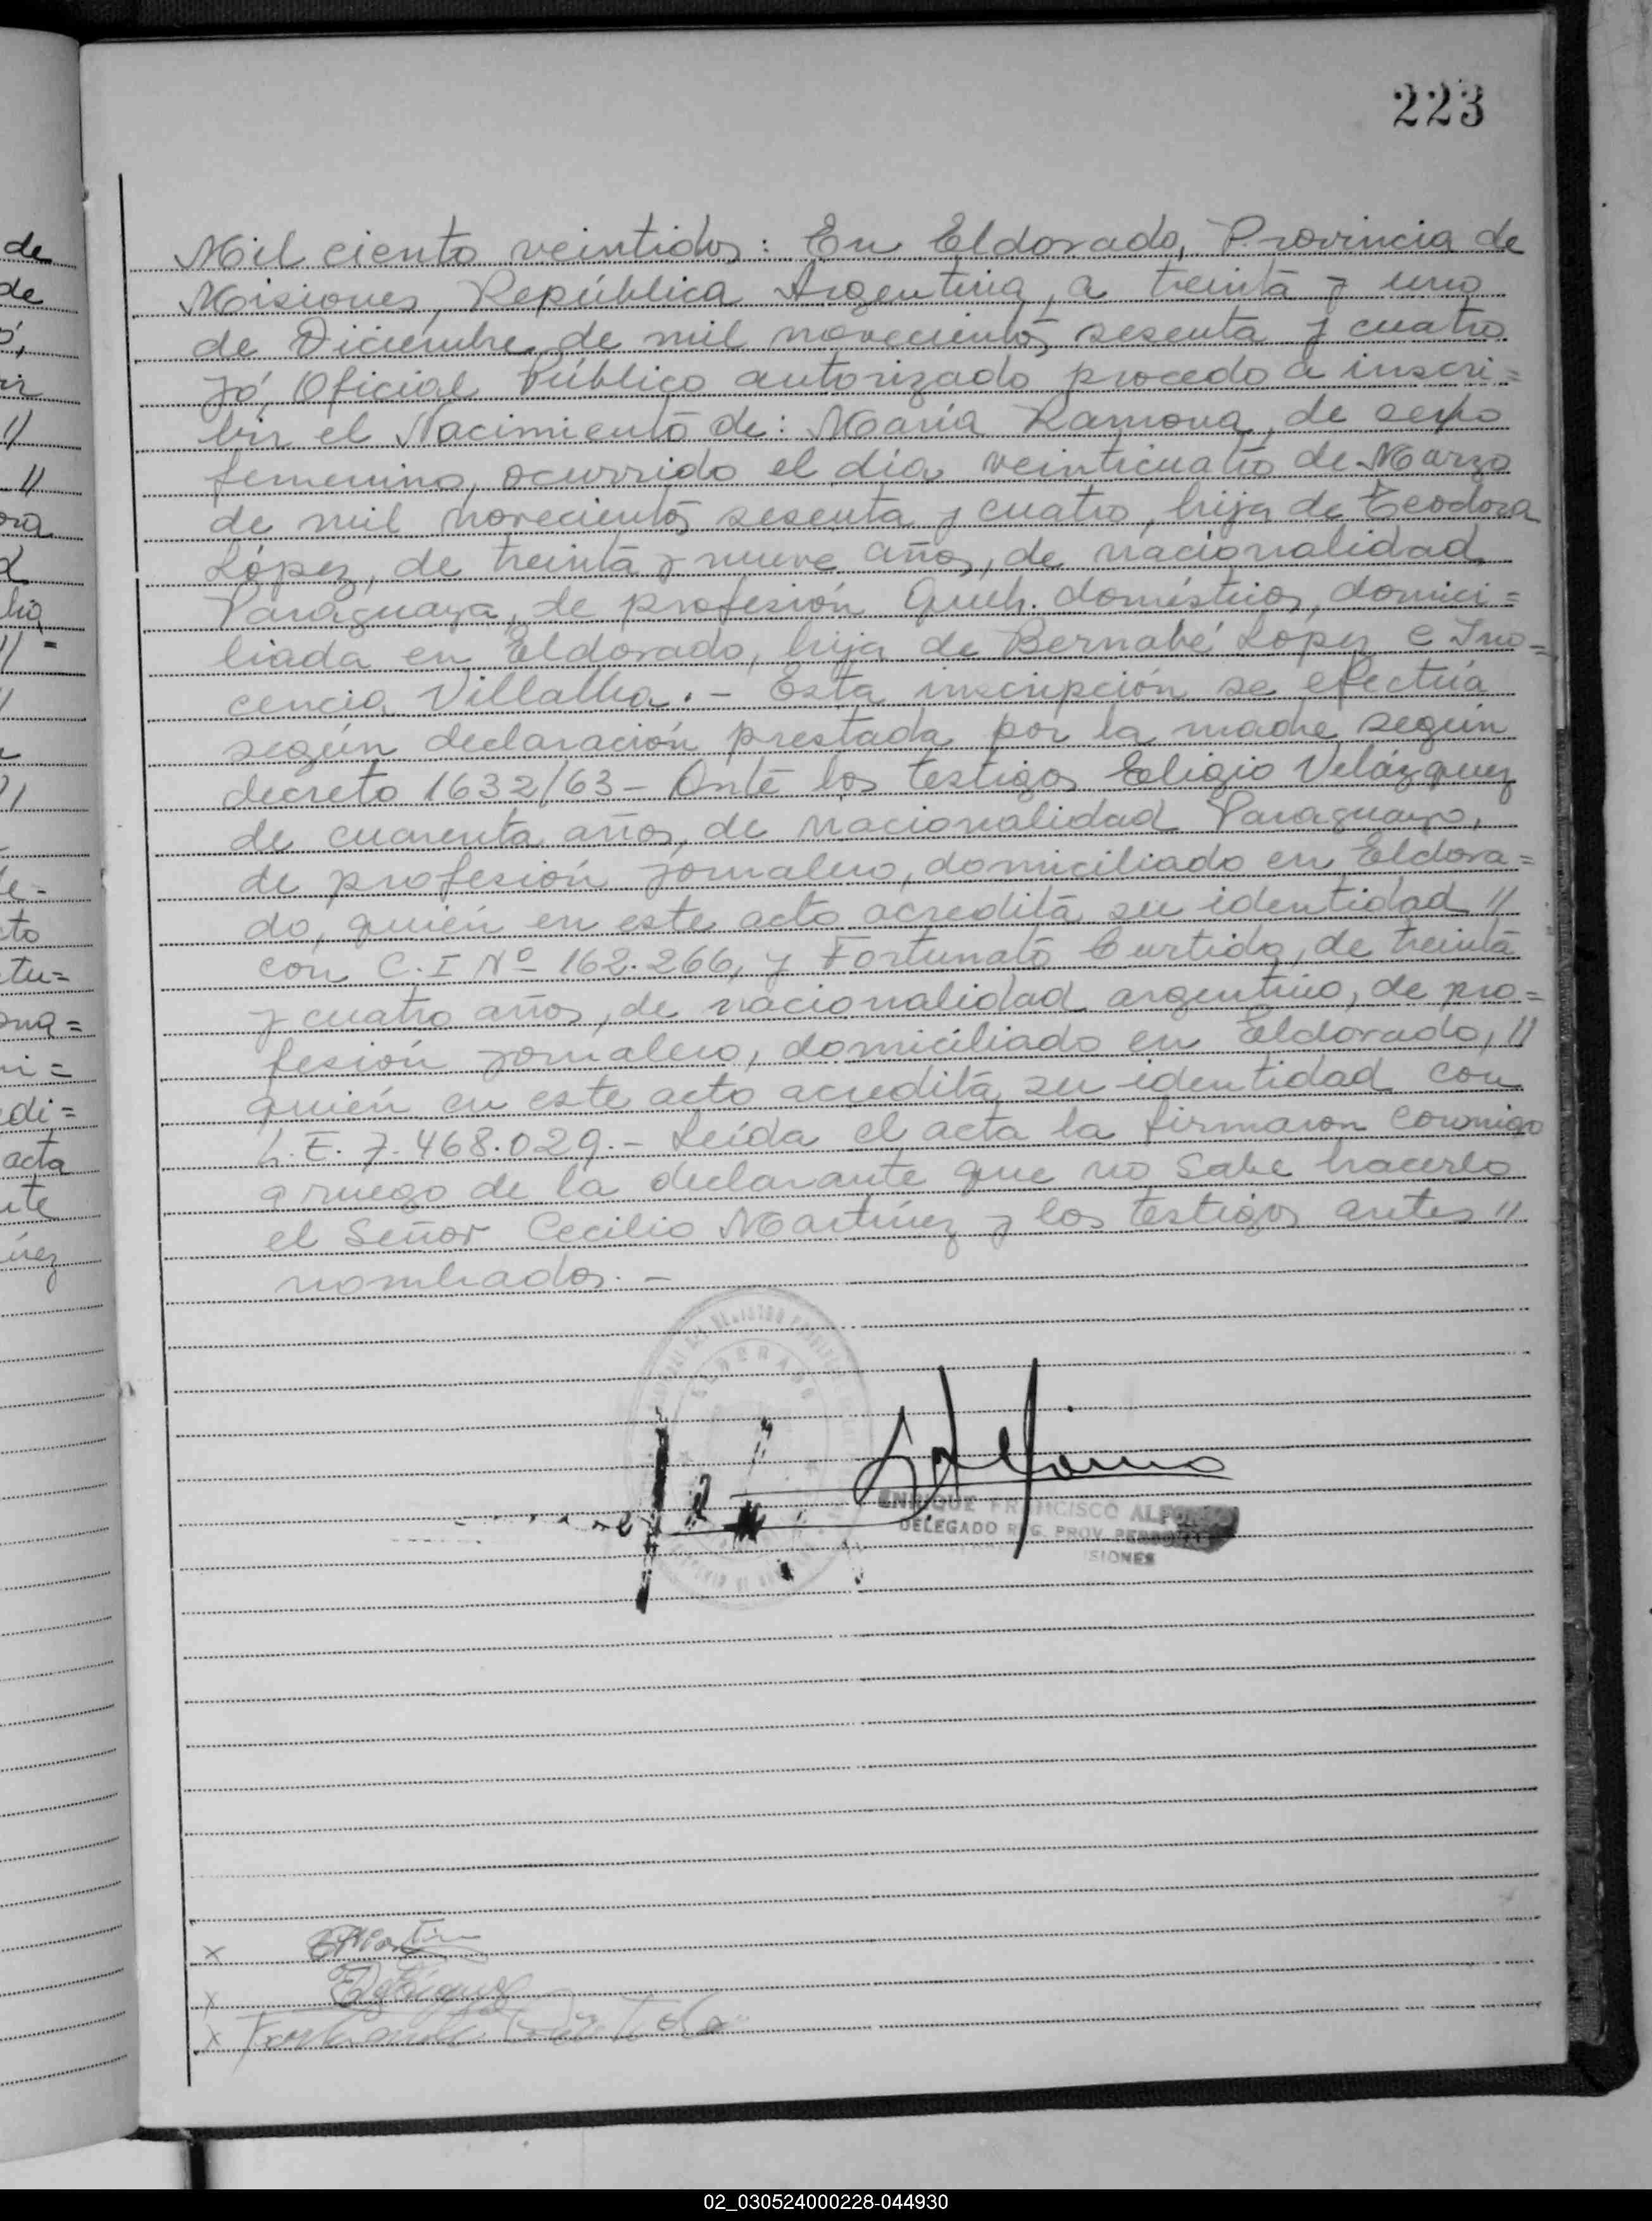 223
Mil ciento veintidos: En Eldorado, Provincia de
Misiones, República Argentina, a treinta y uno
de Diciembre de mil novecientos sesenta y cuatro
yó, Oficial Público autorizado procedo a inscri=
bir el Nacimiento de: María Ramona, de sexo
femenino, ocurrido el día veinticuatro de Marzo
de mil novecientos sesenta y cuatro, hija de Teodora
López, de treinta y nueve años, de nacionalidad
Paraguaya, de profesión Queh. domésticos, domici=
liada en Eldorado, hija de Bernabé Lopez e Ino=
cencia Villalba.- Esta inscripción se efectúa
según declaración prestada por la madre según
decreto 1632/63- Ante los testigos Eligio Velázquez
de cuarenta años, de nacionalidad Paraguayo,
de profesión jornalero, domiciliado en Eldora=
do, quién en este acto acredita su identidad //
con C.I Nº 162.266, y Fortunato Curtido, de treinta
y cuatro años, de nacionalidad argentino, de pro=
fesión jornalero, domiciliado en Eldorado, //
quién en este acto acredita su identidad con
L.E. 7.468.029.- Leída el acta la firmaron conmigo
a ruego de la declarante que no sabe hacerlo
el Señor Cecilio Martínez y los testigos antes //
nombrados.-
ENRIQUE FRANCISCO
DELEGADO REG. PROV.
de
de
ir
//
//
to
tu=
ona=
di=
acta
02_030524000228-044930